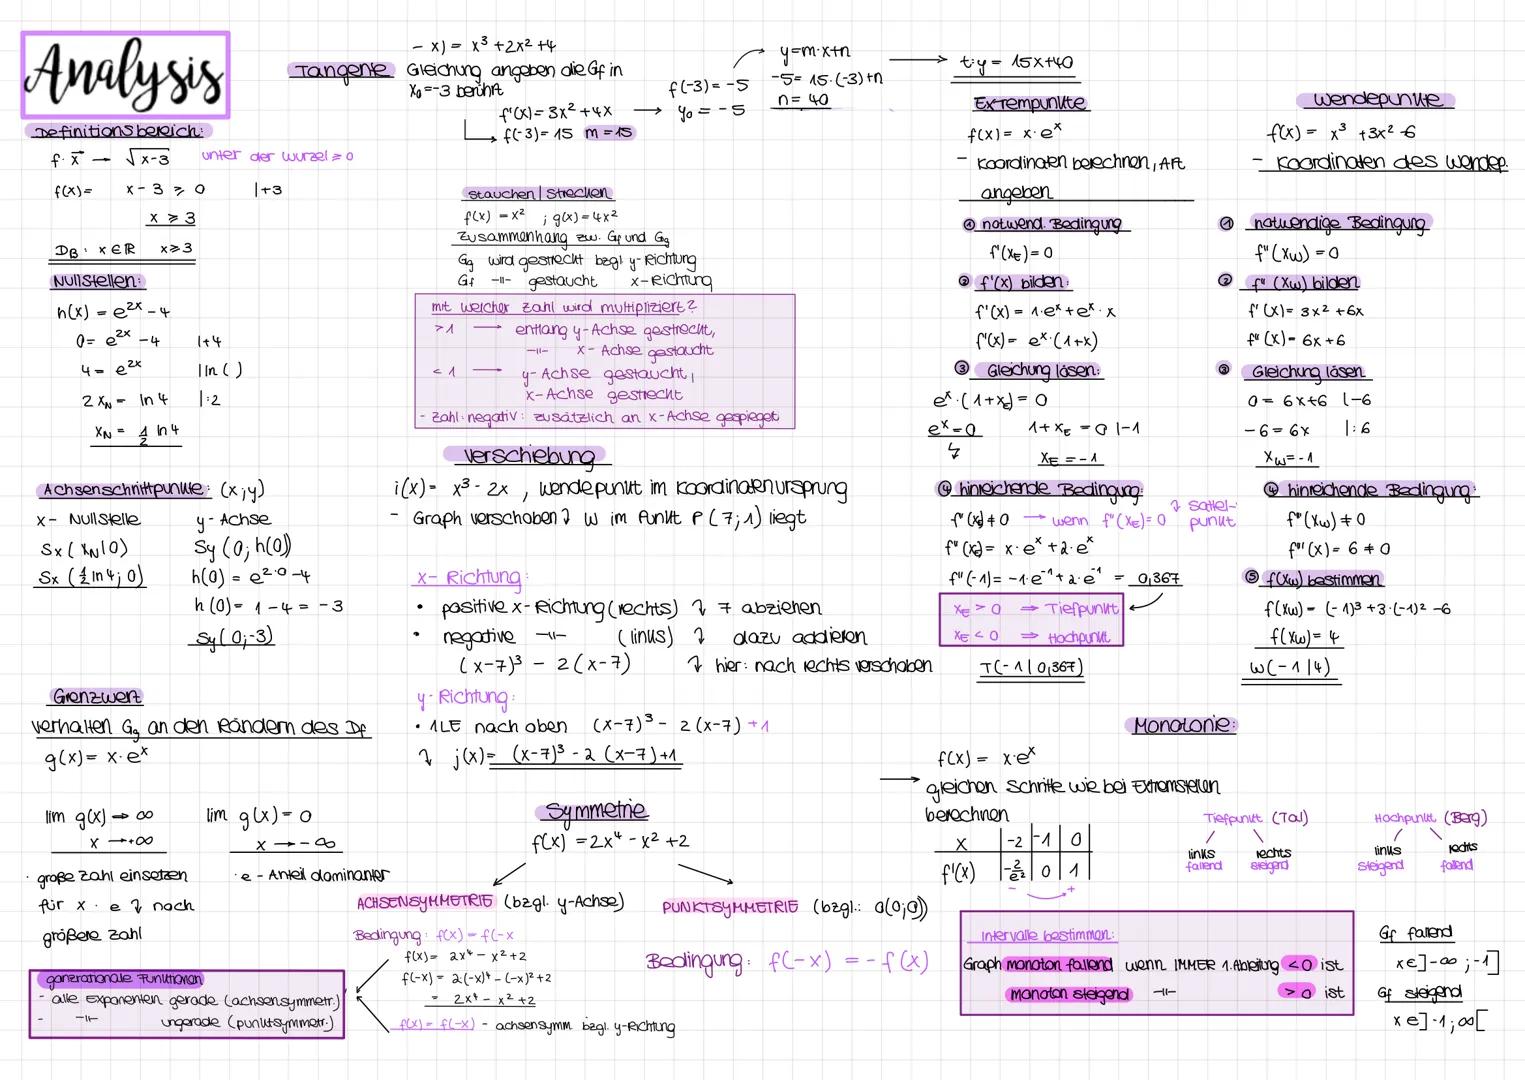 Analysis
Definitionsbereich:
f: x → √x-3 unter der Wurzel ≥ 0
f(x)= x-3 ≥ 0 |+3
x ≥ 3
D_B: x ∈ ℝ x≥3
Nullstellen:
h(x) = e^2x - 4
0 = e^2x - 4 |+4
4 = e^2x | ln ( )
2x_N = ln 4 |:2
x_N = 1/2 ln 4
Achsenschnittpunkte: (x;y)
x- Nullstelle y-Achse
Sx (x_N|0) Sy (0; h(0))
Sx (1/2 ln 4; 0) h(0) = e^2·0 - 4
h(0) = 1 - 4 = -3
Sy (0;-3)
Grenzwert
verhalten Gg an den Rändern des Df
g(x) = x·e^x
lim g(x) → ∞ lim g(x) = 0
x → +∞ x → -∞
· große Zahl einsetzen · e-Anteil dominanter
für x · e ↴ noch
größere Zahl
ganzrationale Funktionen
- alle Exponenten gerade (achsensymmetr.)
- -"- ungerade (punktsymmetr.)
- x) = x³ + 2x² + 4
Tangente Gleichung angeben die Gf in
x₀ = -3 berührt
f'(x) = 3x² + 4x → f(-3) = -5
y₀ = -5
f(-3) = 15 m = 15
y = m·x+n
-5 = 15·(-3)+n
n = 40
→ t:y = 15x+40
stauchen | strecken
f(x) = x² ; g(x) = 4x²
Zusammenhang zw. Gf und Gg
Gg wird gestreckt bzgl y-Richtung
Gf -"- gestaucht x-Richtung
mit welcher Zahl wird multipliziert?
>1 → entlang y-Achse gestreckt,
-"- x-Achse gestaucht
<1 → y-Achse gestaucht,
x-Achse gestreckt
- Zahl: negativ: zusätzlich an x-Achse gespiegelt
Verschiebung
i(x) = x³ - 2x , Wendepunkt im Koordinatenursprung
- Graph verschoben ↴ W im Punkt P (7;1) liegt
x-Richtung:
• positive x-Richtung (rechts) ↴ 7 abziehen
• negative -"- (links) ↴ dazu addieren
(x-7)³ - 2(x-7) ↴ hier: nach rechts verschoben
y-Richtung:
• 1LE nach oben (x-7)³ - 2(x-7) +1
↴ j(x) = (x-7)³ - 2(x-7)+1
Symmetrie
f(x) = 2x⁴ - x² + 2
ACHSENSYMMETRIE (bzgl. y-Achse)
Bedingung: f(x) = f(-x
f(x) = 2x⁴ - x² + 2
f(-x) = 2(-x)⁴ - (-x)² + 2
= 2x⁴ - x² + 2
f(x) = f(-x) - achsensymm. bzgl. y-Richtung
PUNKTSYMMETRIE (bzgl.: 0(0;0))
Bedingung: f(-x) = -f(x)
Extrempunkte
f(x) = x·e^x
- Koordinaten berechnen, Art
angeben
① notwend. Bedingung
f'(x_E) = 0
② f'(x) bilden:
f'(x) = 1·e^x + e^x·x
f'(x) = e^x·(1+x)
③ Gleichung lösen:
e^x·(1+x_E) = 0
e^x = 0 1+x_E = 0 |-1
↯ x_E = -1
④ hinreichende Bedingung:
f''(x_E) ≠ 0 → wenn f''(x_E) = 0 ↴ Sattel-
punkt
f''(x_E) = x·e^x + 2·e^x
f''(-1) = -1·e^-1 + 2·e^-1 = 0,367
x_E > 0 ⇒ Tiefpunkt
x_E < 0 ⇒ Hochpunkt
T(-1|0,367)
Wendepunkte
f(x) = x³ + 3x² - 6
- Koordinaten des Wendep.
① notwendige Bedingung
f''(x_W) = 0
② f''(x_W) bilden
f'(x) = 3x² + 6x
f''(x) = 6x + 6
③ Gleichung lösen
0 = 6x+6 |-6
-6 = 6x |:6
x_W = -1
④ hinreichende Bedingung:
f''(x_W) ≠ 0
f'''(x) = 6 ≠ 0
⑤ f(x_W) bestimmen
f(x_W) = (-1)³ + 3·(-1)² - 6
f(x_W) = 4
W(-1|4)
Monotonie:
f(x) = x·e^x
→ gleichen Schritte wie bei Extremstellen
berechnen
x | -2 | -1 | 0
f'(x) | -2/e² | 0 | 1
- +
Tiefpunkt (Tal) Hochpunkt (Berg)
links rechts links rechts
fallend steigend steigend fallend
Intervalle bestimmen:
Graph monoton fallend wenn IMMER 1.Ableitung <0 ist
monoton steigend -"- >0 ist
Gf fallend
x∈]-∞;-1]
Gf steigend
x∈]-1;∞[